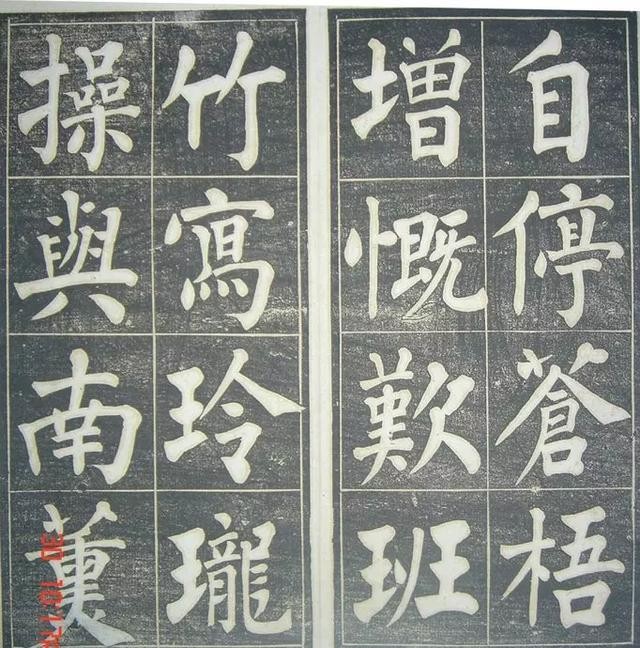 自停蒼梧
增慨歎班
竹寫玲瓏
操與南薰